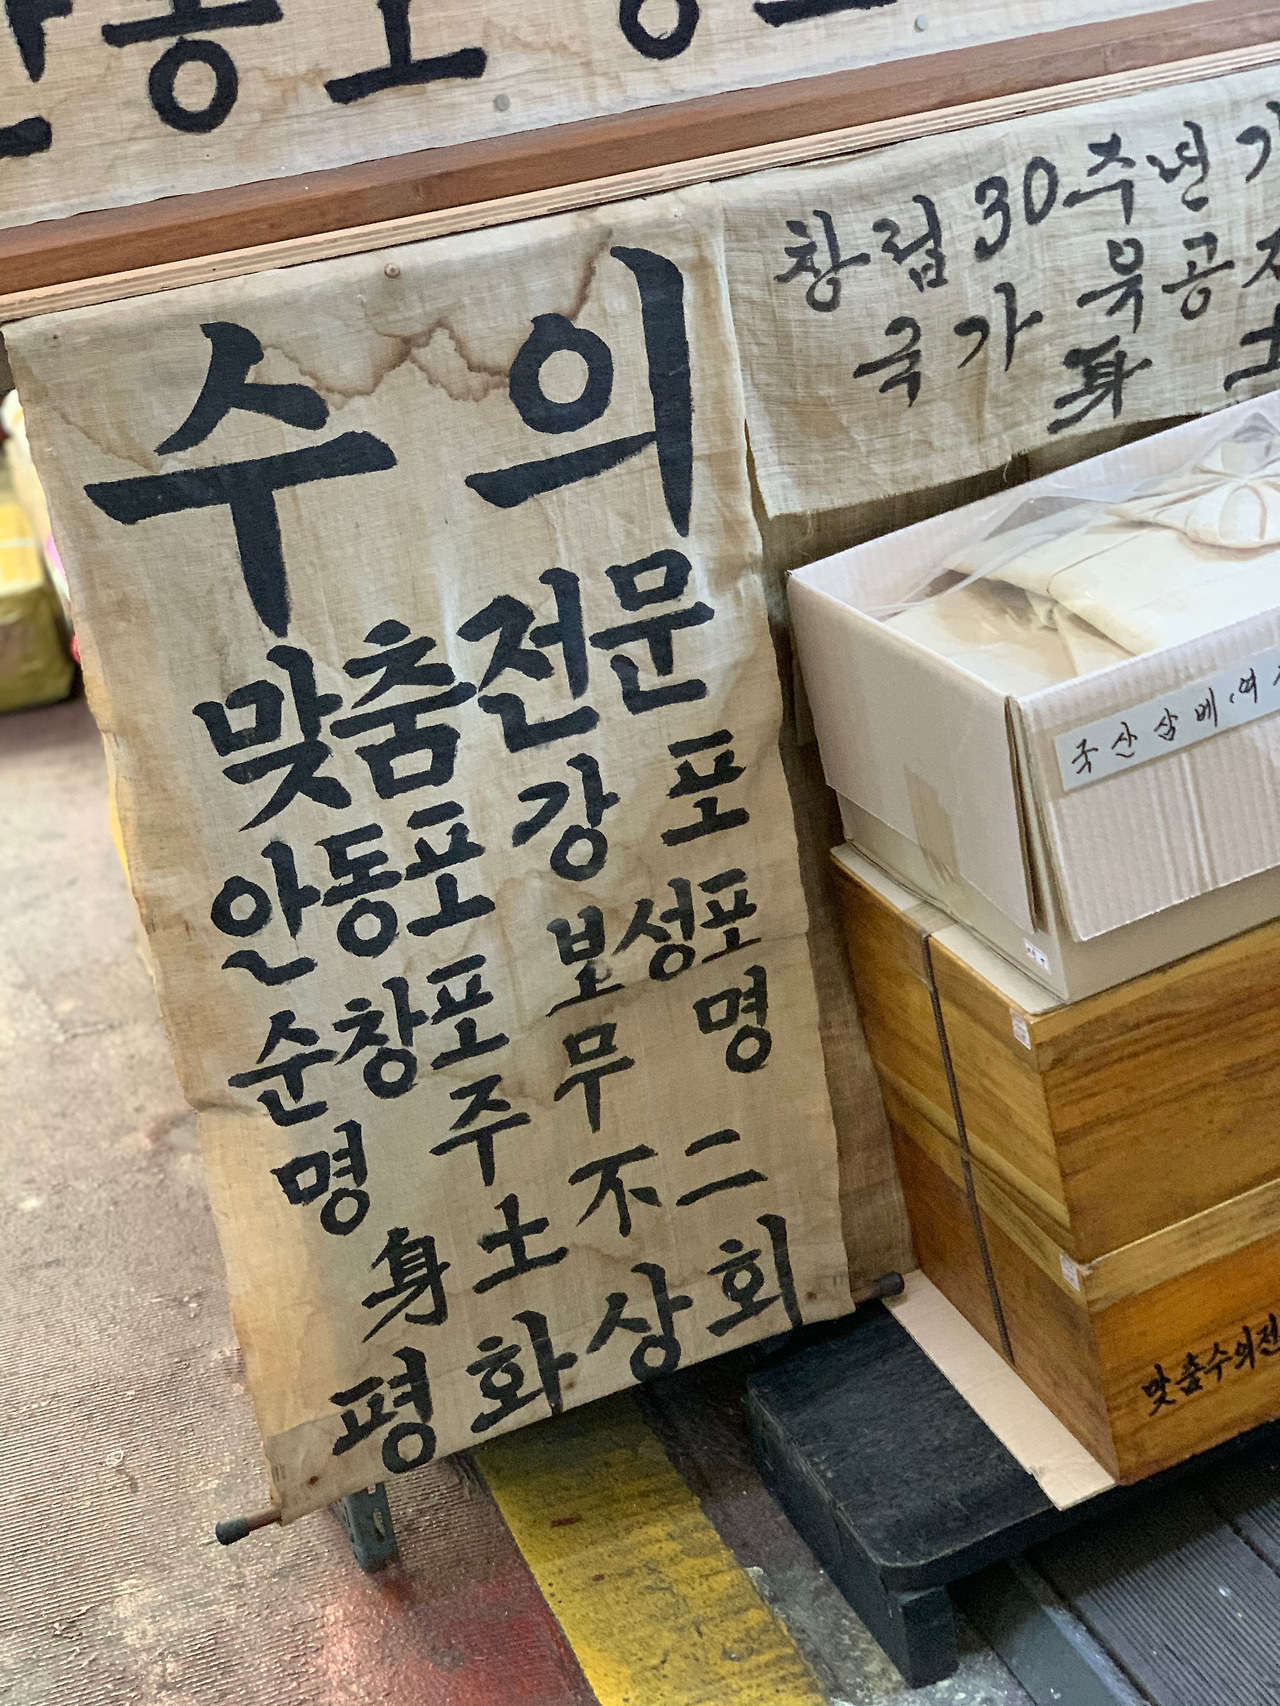 안동포
창립 30주년
국가 유공
身 土
수의
맞춤전문
안동포 강포
순창포 보성포
명주 무명
身土不二
평화상회
국산삼베(여
맞춤수의전